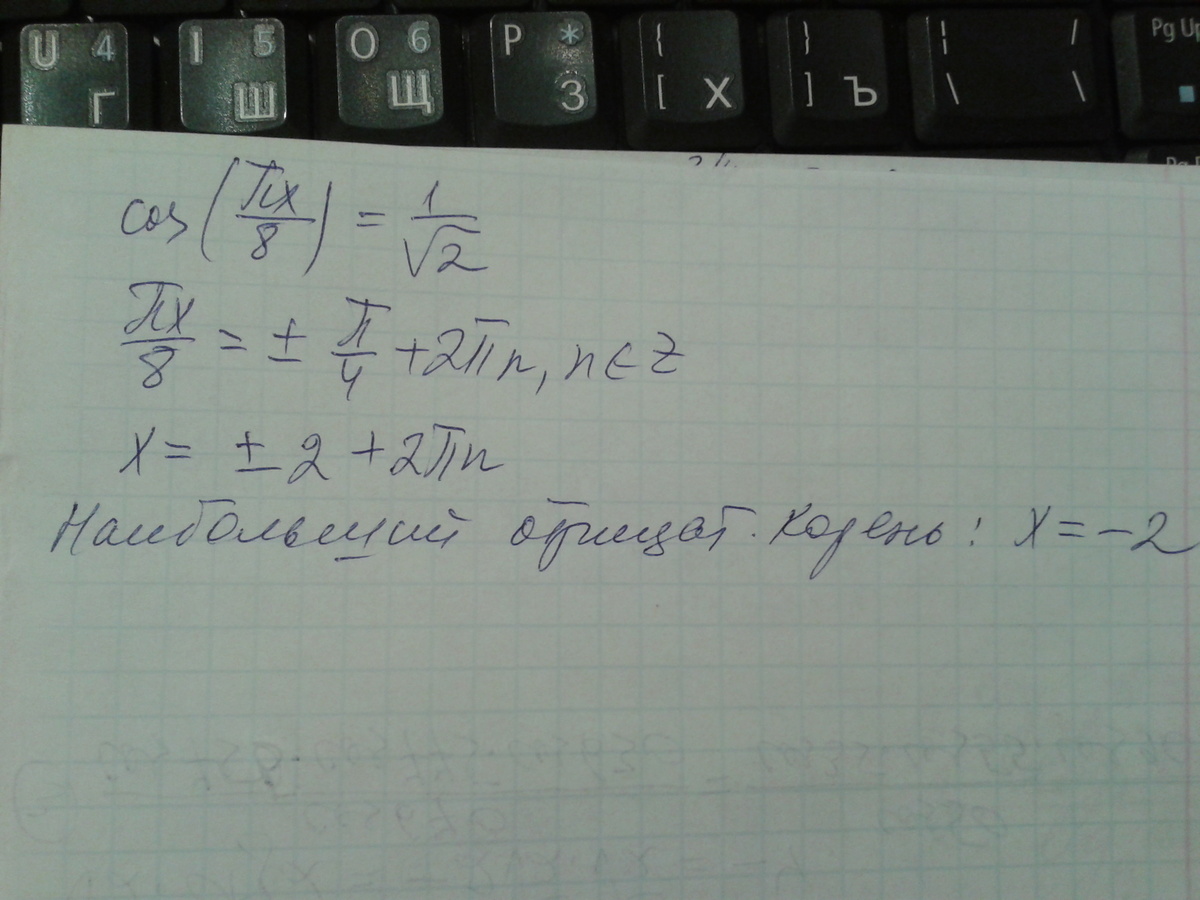 U 4 Г
I 5 Ш
O 6 Щ
P * З
{ [ Х
} ] Ъ
¦ / \ \
Pg Up
cos(πx/8) = 1/√2
πx/8 = ± π/4 + 2πn, n ∈ Z
x = ± 2 + 2πn
Наибольший отрицат. корень: x = -2